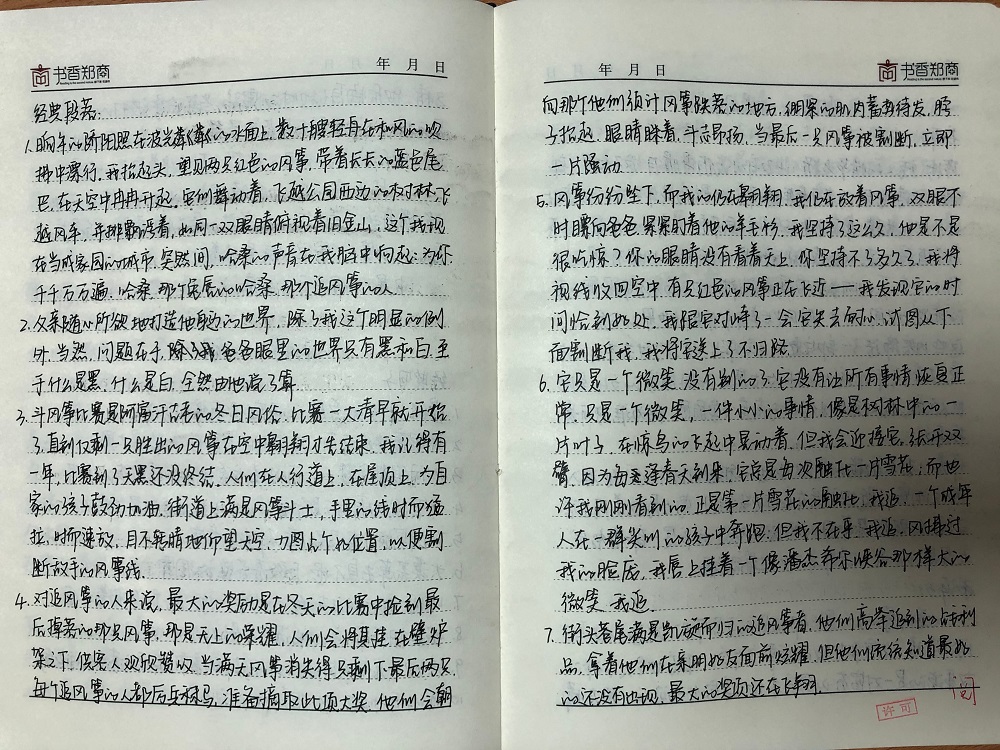 书香郑商
年 月 日
经典段落：
1. 晌午的骄阳照在波光粼粼的水面上，数十艘轻舟在和风的吹
拂中飘行。我抬起头，望见两只红色的风筝，带着长长的蓝色尾
巴，在天空中冉冉升起。它们舞动着，飞越公园西边的树林，飞
越风车，并排飘浮着，如同一双眼睛俯视着旧金山，这个我现
在当成家园的城市。突然间，哈桑的声音在我脑中响起：为你
千千万万遍。哈桑，那个兔唇的哈桑，那个追风筝的人。
2. 父亲随心所欲地打造他身边的世界，除了我这个明显的例
外。当然，问题在于，除了我，爸爸眼里的世界只有黑和白。至
于什么是黑，什么是白，全然由他说了算。
3. 斗风筝比赛是阿富汗古老的冬日风俗。比赛一大清早就开始
了，直到仅剩一只胜出的风筝在空中翱翔才告结束。我记得有
一年，比赛到了天黑还没终结。人们在人行道上，在屋顶上，为自
家的孩子鼓劲加油。街道上满是风筝斗士，手里的线时而猛
拉，时而速放，目不转睛地仰望天空，力图占个好位置，以便割
断敌手的风筝线。
4. 对追风筝的人来说，最大的奖励是在冬天的比赛中捡到最
后掉落的那只风筝。那是无上的荣耀，人们会将其挂在壁炉
架之下，供客人观欣赞叹。当满天风筝消失得只剩下最后两只，
每个追风筝的人都厉兵秣马，准备摘取此项大奖。他们会朝
年 月 日
书香郑商
向那个他们预计风筝跌落的地方，绷紧的肌肉蓄势待发，脖
子抬起，眼睛眯着，斗志昂扬。当最后一只风筝被割断，立即
一片骚动。
5. 风筝纷纷坠下，而我的仍在翱翔。我仍在放着风筝，双眼不
时瞟向爸爸，紧紧盯着他的羊毛衫。我坚持了这么久，他是不是
很吃惊？你的眼睛没有看着天上，你坚持不了多久了。我将
视线收回空中。有只红色的风筝正在飞近——我发现它的时
间恰到好处。我跟它对峙了一会，它失去耐心，试图从下
面割断我，我将它送上了不归路。
6. 它只是一个微笑，没有别的了。它没有让所有事情恢复正
常。只是一个微笑，一件小小的事情，像是树林中的一
片叶子，在惊鸟的飞起中晃动着。但我会迎接它，张开双
臂。因为每逢春天到来，它总是每次融化一片雪花；而也
许我刚刚看到的，正是第一片雪花的融化。我追。一个成年
人在一群尖叫的孩子中奔跑。但我不在乎。我追，风拂过
我的脸庞，我唇上挂着一个像潘杰希尔峡谷那样大的
微笑。我追。
7. 街头巷尾满是凯旋而归的追风筝者，他们高举追到的战利
品，拿着它们在亲朋好友面前炫耀。但他们统统知道最好
的还没有出现，最大的奖项还在飞翔。
阅
许可